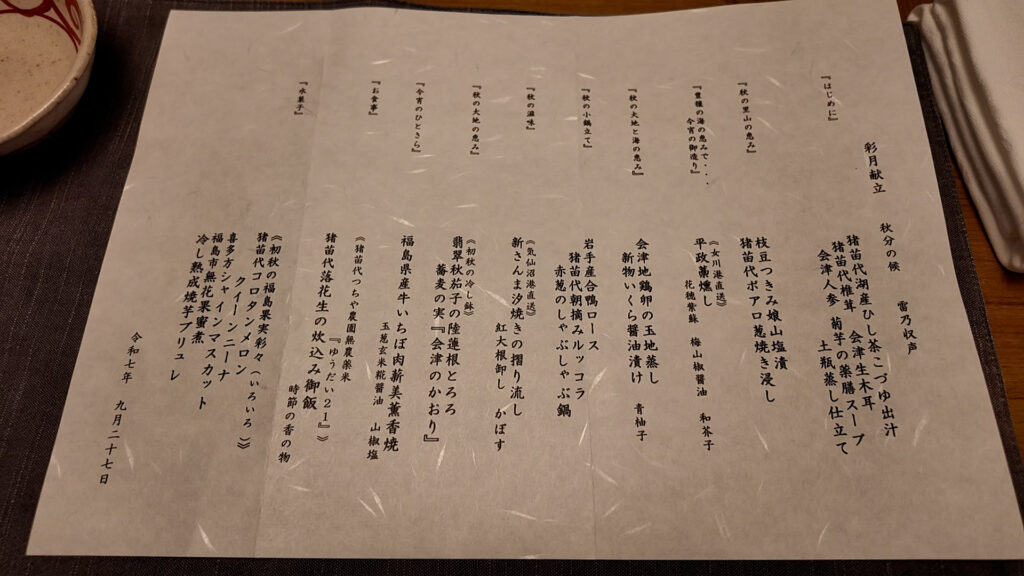 彩月献立
秋分の候　雷乃収声
『はじめに』
猪苗代湖産ひし茶こづゆ出汁
猪苗代椎茸　会津生木耳
会津人参　菊芋の薬膳スープ
土瓶蒸し仕立て
『秋の里山の恵み』
枝豆つきみ娘山塩漬
猪苗代ポアロ葱焼き浸し
『豊穣の海の恵みで・・・
今宵の御造り』
《女川港直送》
平政藁燻し
花穂紫蘇　梅山椒醤油　和芥子
『秋の大地と海の恵み』
会津地鶏卵の玉地蒸し
新物いくら醤油漬け　青柚子
『秋の小鍋立て』
岩手産合鴨ロース
猪苗代朝摘みルッコラ
赤葱のしゃぶしゃぶ鍋
『秋の滋味』
《気仙沼港直送》
新さんま汐焼きの摺り流し
紅大根卸し　かぼす
『秋の大地の恵み』
《初秋の冷し鉢》
翡翠秋茄子の陸蓮根とろろ
蕎麦の実『会津のかおり』
『今宵のひとさら』
福島県産牛いちぼ肉薪美薫香焼
玉葱玄米糀醤油　山椒塩
『お食事』
《猪苗代つちや農園無農薬米
『ゆうだい２１』》
猪苗代落花生の炊込み御飯
時節の香の物
『水菓子』
《初秋の福島果実彩々（いろいろ）》
猪苗代コロタンメロン
クイーンニーナ
喜多方シャインマスカット
福島市無花果蜜煮
冷し熟成焼芋ブリュレ
令和七年　九月二十七日